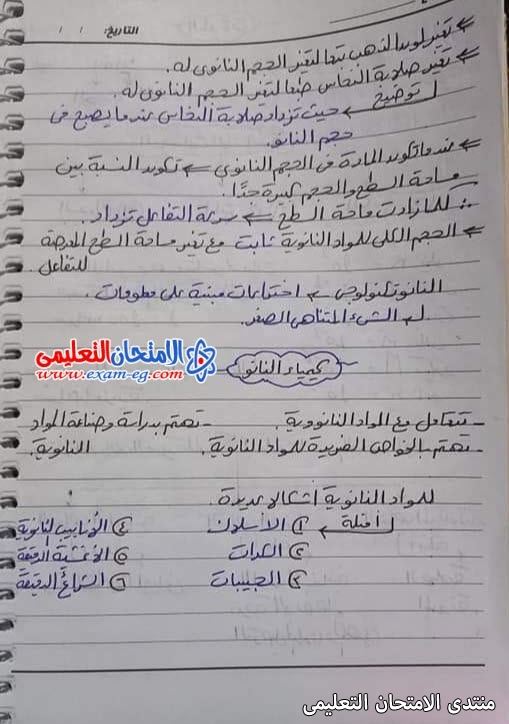 التاريخ: / /
← تغير لون الذهب تبعا لتغير الحجم النانوى له.
← تغير صلابة النحاس طبعا لتغير الحجم النانوى له.
توضيح ← حيث تزداد صلابة النحاس عندما يصبح فى
حجم النانو.
← عندما تكون المادة فى الحجم النانوى ← تكون النسبة بين
مساحة السطح والحجم كبيرة جدًا.
∴ كلما زادت مساحة السطح ← سرعة التفاعل تزداد.
← الحجم الكلى للمواد النانوية ثابت مع تغير مساحة السطح المعرضة
للتفاعل.
النانوتكنولوجى ← اختراعات مبنية على معلومات.
الشىء المتناهى الصغر.
الامتحان التعليمى
www.exam-eg.com
كيمياء النانو
- تتعامل مع المواد النانوية. - تهتم بدراسة وصناعة المواد
- تهتم بالخواص الفريدة للمواد النانوية. النانوية.
للمواد النانوية أشكال عديدة.
أمثلة ← ① الأسلاك ④ الأنابيب النانوية
② الكرات ⑤ الأغشية الرقيقة
③ الحبيبات ⑥ الشرائح الدقيقة
منتدى الامتحان التعليمى